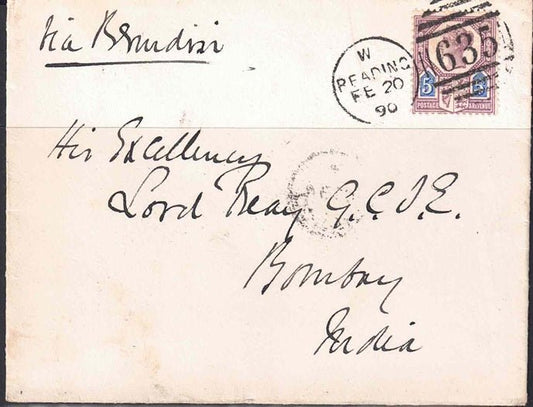 Via Brindisi
W
READING
FE 20
90
635
5 5
POSTAGE & REVENUE
His Excellency
Lord Reay G.C.I.E.
Bombay
India